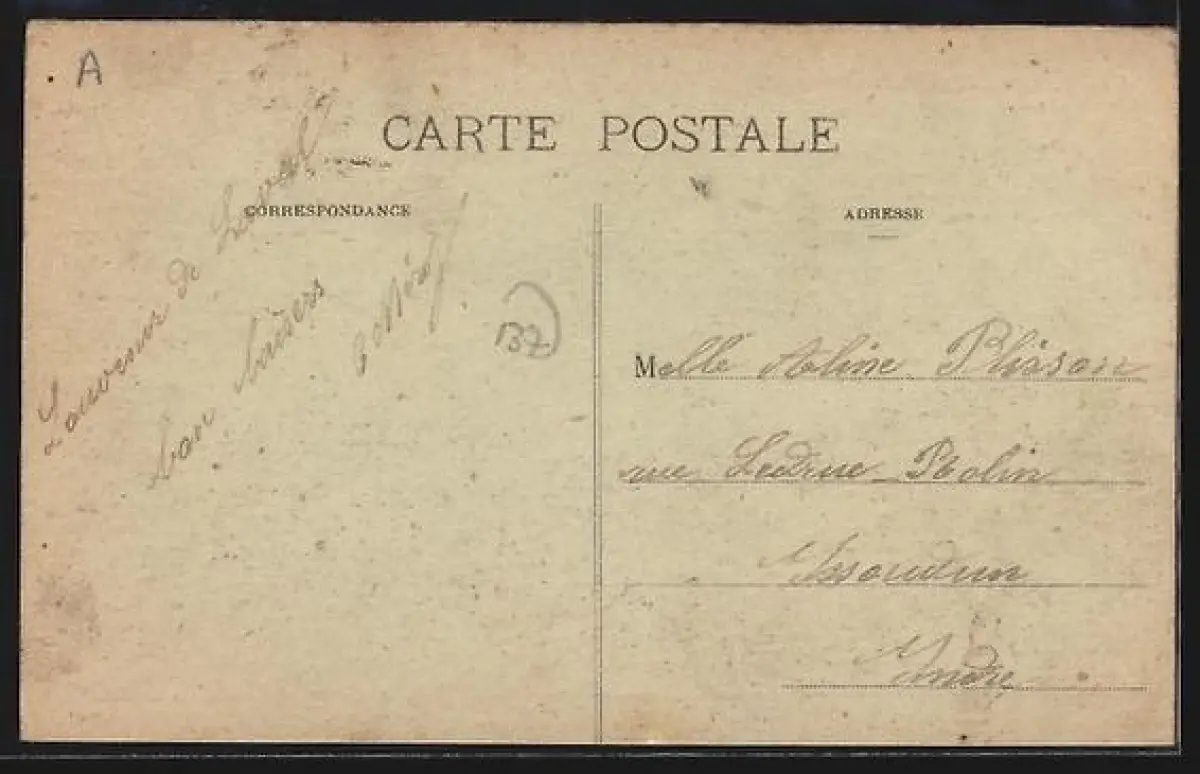 A
CARTE POSTALE
CORRESPONDANCE
Souvenir de
Bon Baisers
137
ADRESSE
Melle Aline Plisson
rue Ledru-Rolin
Issoudun
Indre